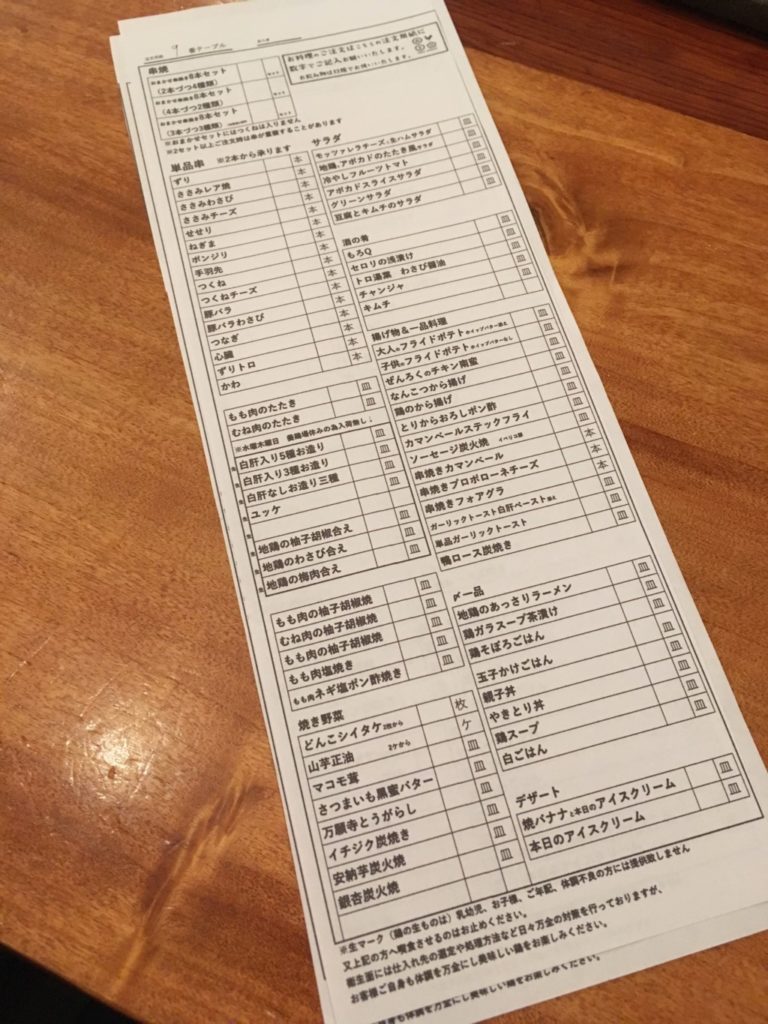 9 番テーブル
お料理のご注文はこちらの注文用紙に
数字でご記入お願いいたします。
お飲み物は口頭でお伺いいたします。
串焼
おまかせ串焼き8本セット
(2本づつ4種類)
おまかせ串焼き8本セット
(4本づつ2種類)
おまかせ串焼き8本セット
(3本づつ3種類)
※おまかせセットにはつくねは入りません
※2セット以上ご注文時は串が重複することがあります
単品串 ※2本から承ります
ずり 本
ささみレア焼 本
ささみわさび 本
ささみチーズ 本
せせり 本
ねぎま 本
ボンジリ 本
手羽先 本
つくね 本
つくねチーズ 本
豚バラ 本
豚バラわさび 本
つなぎ 本
心臓 本
ずりトロ 本
かわ 本
もも肉のたたき 皿
むね肉のたたき 皿
※水曜木曜日 養鶏場休みの為入荷無し
生 白肝入り5種お造り 皿
生 白肝入り3種お造り 皿
生 白肝なしお造り三種 皿
生 ユッケ
生 地鶏の柚子胡椒合え 皿
生 地鶏のわさび合え 皿
生 地鶏の梅肉合え 皿
もも肉の柚子胡椒焼 皿
むね肉の柚子胡椒焼 皿
もも肉の柚子胡椒焼 皿
もも肉塩焼き 皿
もも肉ネギ塩ポン酢焼き 皿
焼き野菜
どんこシイタケ 2枚から 枚
山芋正油 2ケから ケ
マコモ茸 皿
さつまいも黒蜜バター 皿
万願寺とうがらし 皿
イチジク炭焼き 皿
安納芋炭火焼 皿
銀杏炭火焼 皿
サラダ
モッツァレラチーズと生ハムサラダ 皿
地鶏とアボカドのたたき風サラダ 皿
冷やしフルーツトマト 皿
アボカドスライスサラダ 皿
グリーンサラダ 皿
豆腐とキムチのサラダ 皿
酒の肴
もろQ 皿
セロリの浅漬け 皿
トロ湯葉 わさび醤油 皿
チャンジャ 皿
キムチ 皿
揚げ物&一品料理
大人のフライドポテト ホイップバター添え 皿
子供のフライドポテト ホイップバターなし 皿
ぜんろくのチキン南蛮 皿
なんこつから揚げ 皿
鶏のから揚げ 皿
とりからおろしポン酢 皿
カマンベールスティックフライ 皿
ソーセージ炭火焼 イベリコ豚 皿
串焼きカマンベール 本
串焼きプロボローネチーズ 本
串焼きフォアグラ 本
ガーリックトースト白肝ペースト添え 皿
単品ガーリックトースト 皿
鴨ロース炭焼き 皿
〆一品
地鶏のあっさりラーメン 皿
鶏ガラスープ茶漬け 皿
鶏そぼろごはん 皿
玉子かけごはん 皿
親子丼 皿
やきとり丼 皿
鶏スープ 皿
白ごはん 皿
デザート
焼バナナと本日のアイスクリーム 皿
本日のアイスクリーム 皿
※生マーク(鶏の生ものは)乳幼児、お子様、ご年配、体調不良の方には提供致しません
又上記の方へ喫食させるのはお止めください。
衛生面には仕入れ先の選定や処理方法など日々万全の対策を行っておりますが、
お客様ご自身も体調を万全にし美味しい鶏をお楽しみください。
身も体調を万全にし美味しい鶏をお楽しみください。